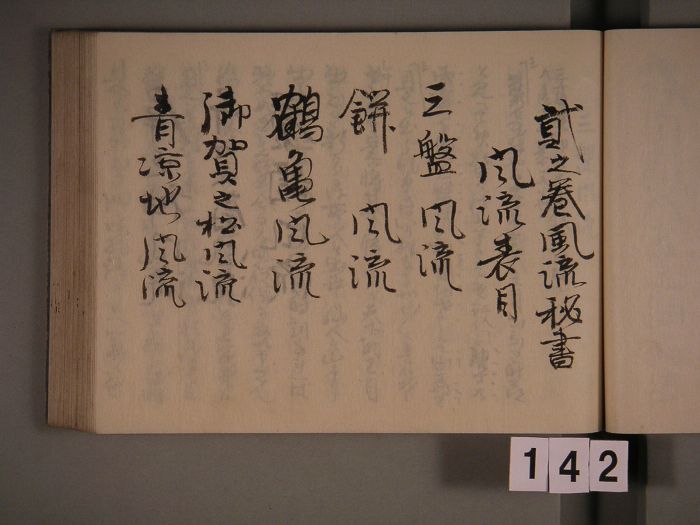 貳之巻風流秘書
風流表目
三盤風流
餅風流
鶴亀風流
御賀之松風流
青凉地風流
142